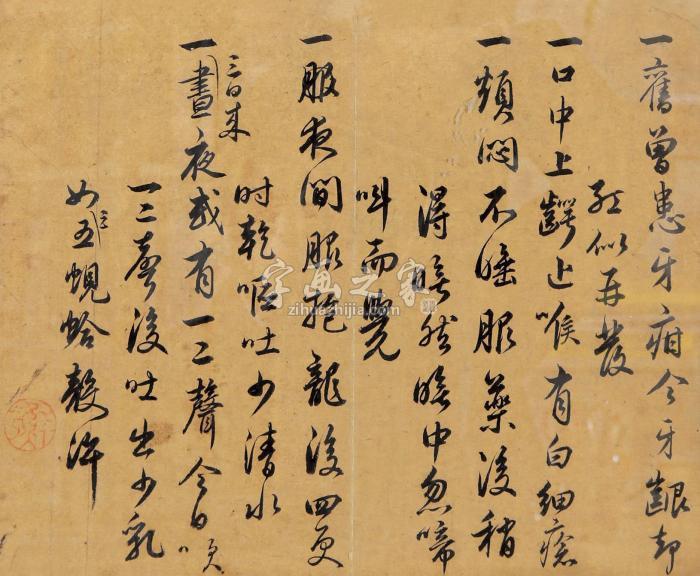 一舊曾患牙疳今牙齦却
似再發
一口中上齶近喉有白細瘡
一煩悶不睡服藥後稍
得睡然睡中忽啼
叫而覺
一服夜間服抱龍後四更
時乾嘔吐少清水
三日來
一晝夜或有一二聲今日
一二聲後吐出少乳
如三五蜆蛤殼許
字画之家
zihuazhijia.com